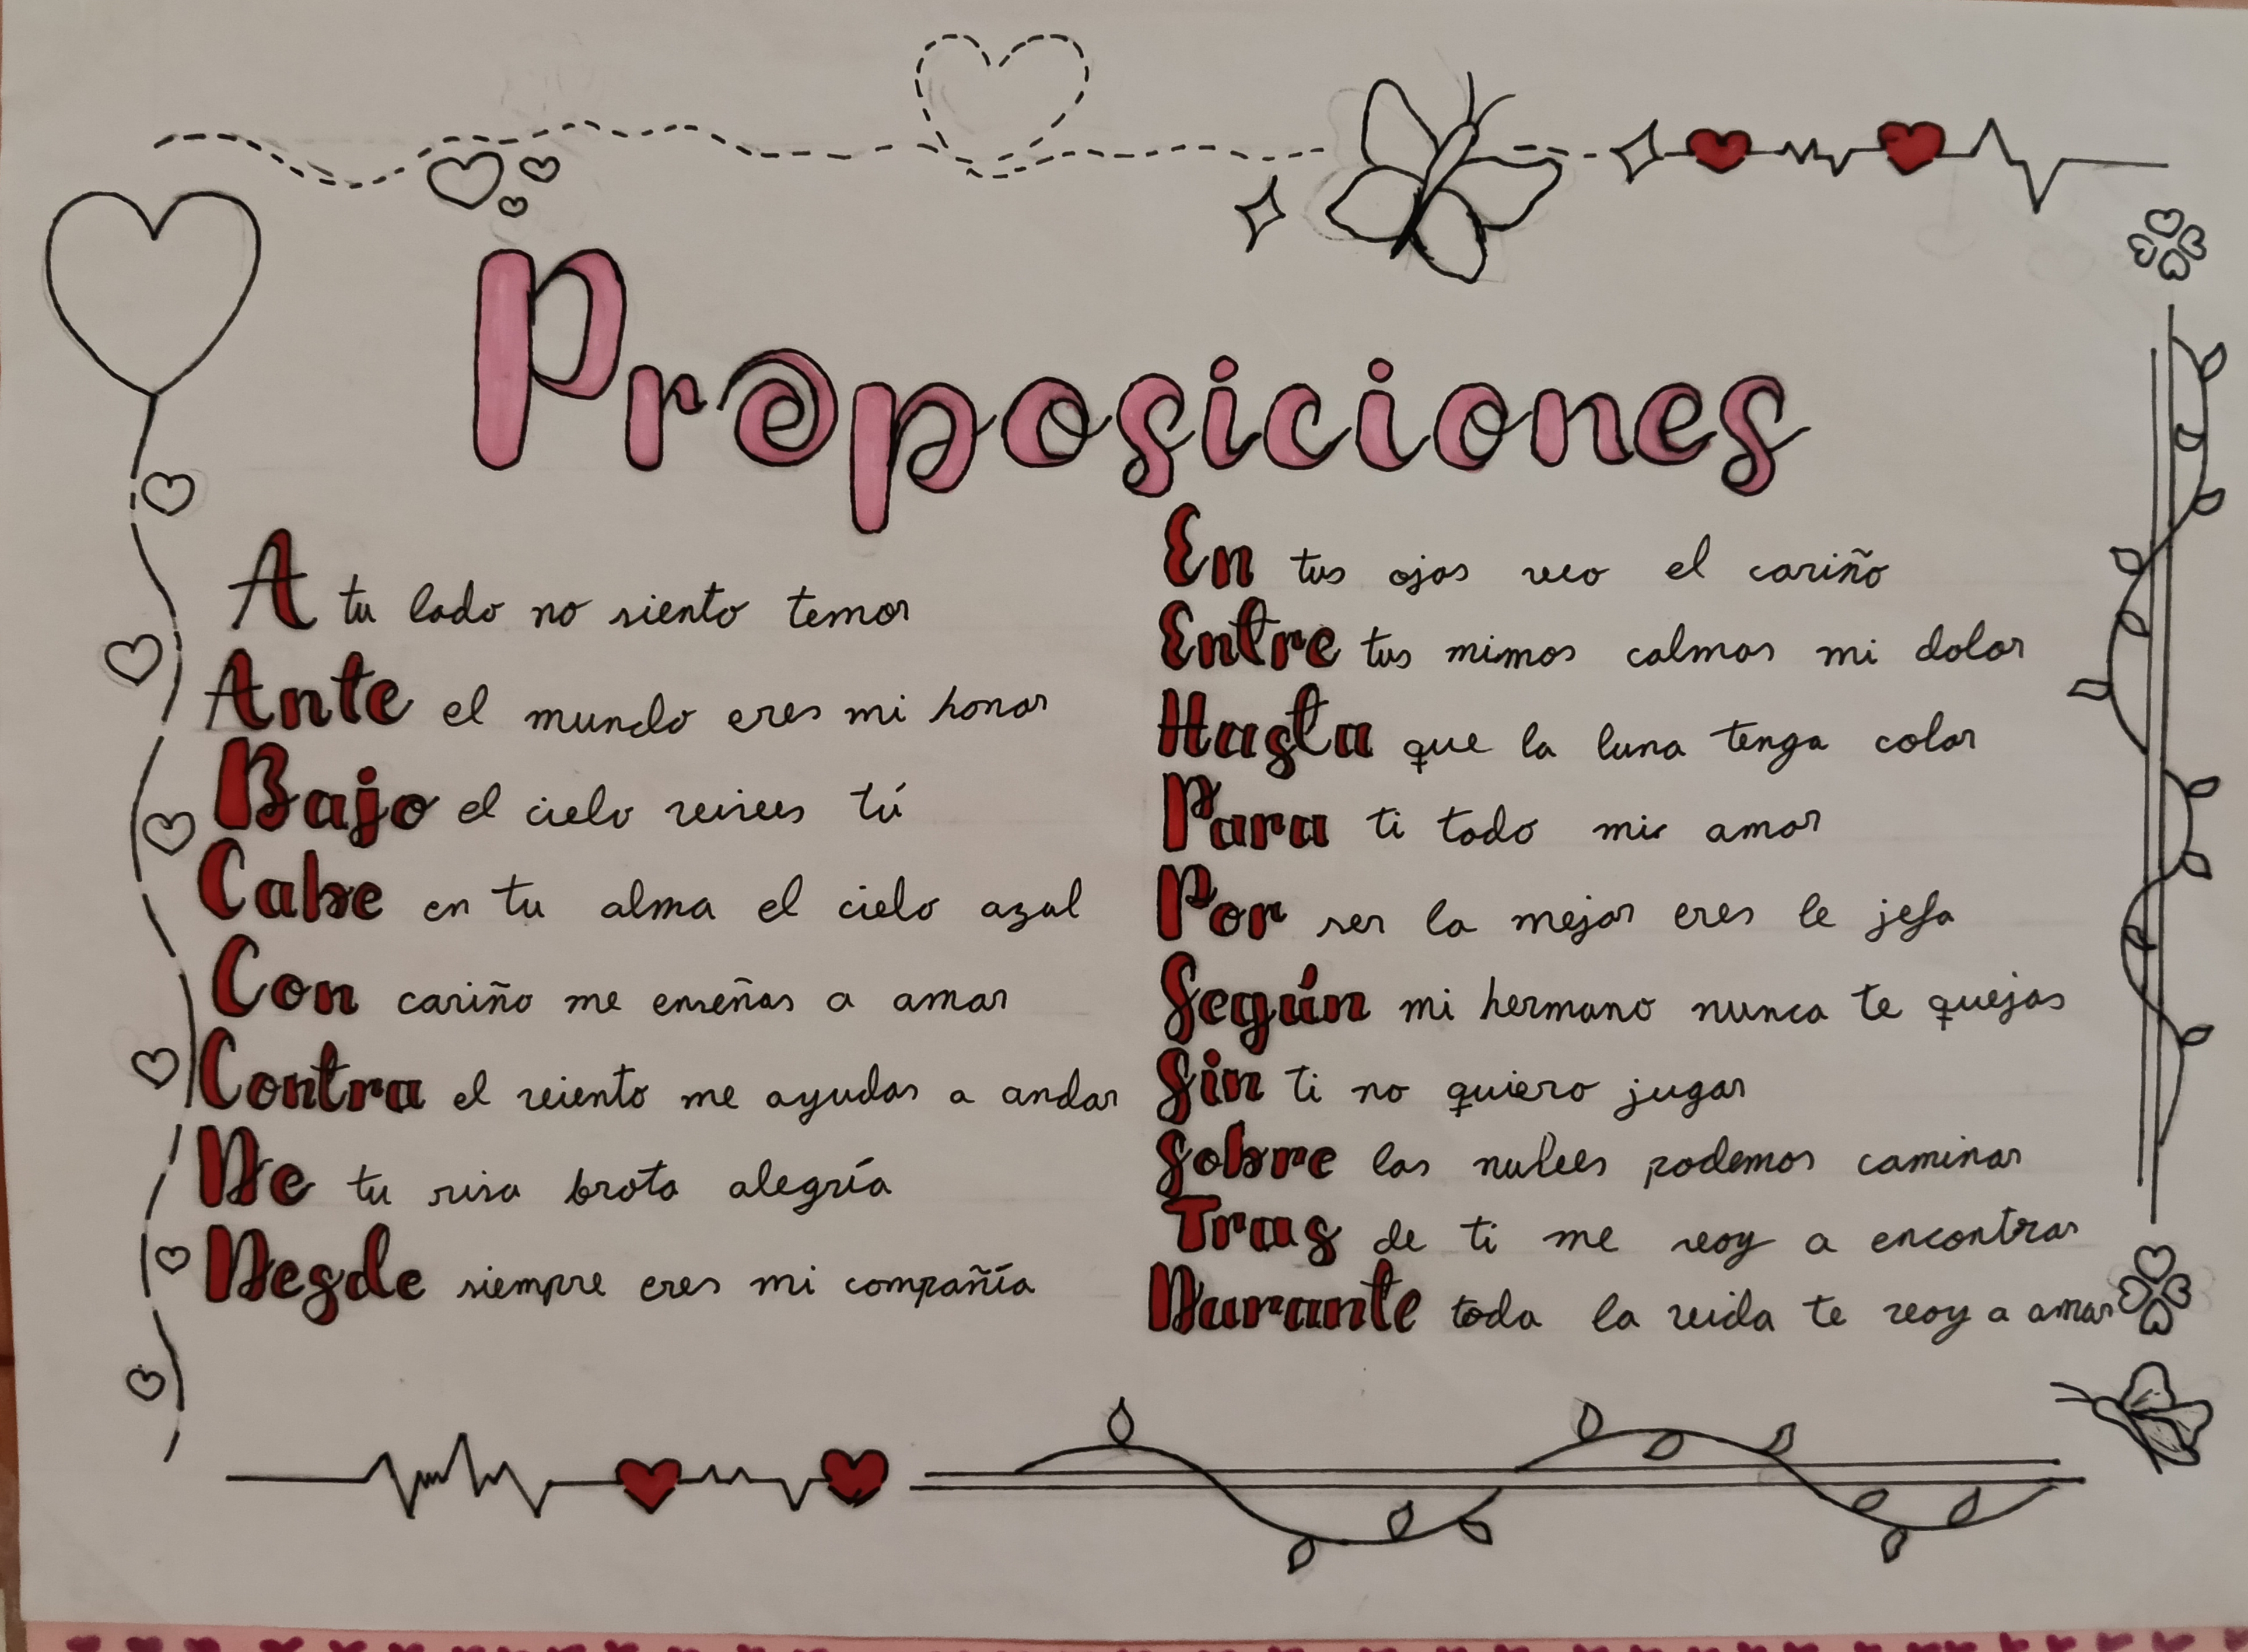 Proposiciones
A tu lado no siento temor
Ante el mundo eres mi honor
Bajo el cielo vives tú
Cabe en tu alma el cielo azul
Con cariño me enseñas a amar
Contra el viento me ayudas a andar
De tu risa brota alegría
Desde siempre eres mi compañía
En tus ojos veo el cariño
Entre tus mimos calmas mi dolor
Hasta que la luna tenga color
Para ti todo mi amor
Por ser la mejor eres le jefa
Según mi hermano nunca te quejas
Sin ti no quiero jugar
Sobre las nubes podemos caminar
Tras de ti me voy a encontrar
Durante toda la vida te voy a amar